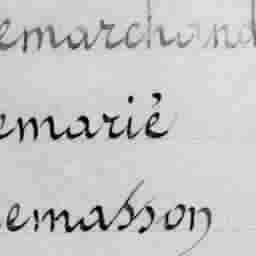 emarchand
emarié
emasson